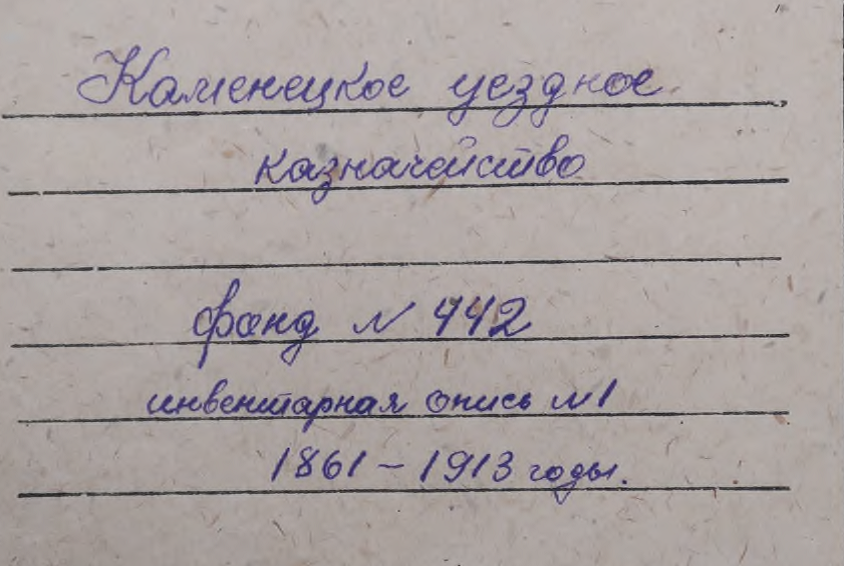 Каменецкое уездное
казначейство
фонд N 442
инвентарная опись N1
1861 – 1913 годы.